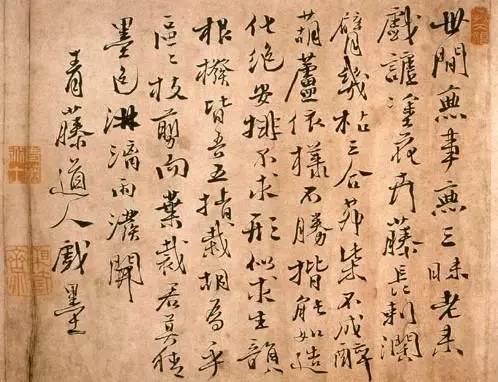 世間無事無三昧老来
戲謔塗花卉藤長刺濶
臂幾枯三合茅柴不成醉
葫蘆依様不勝揩能如造
化絶安排不求形似求生韻
根撥皆吾五指栽胡為乎
區〻枝剪而葉裁君莫猜
墨色淋漓雨潑開
青藤道人戲墨